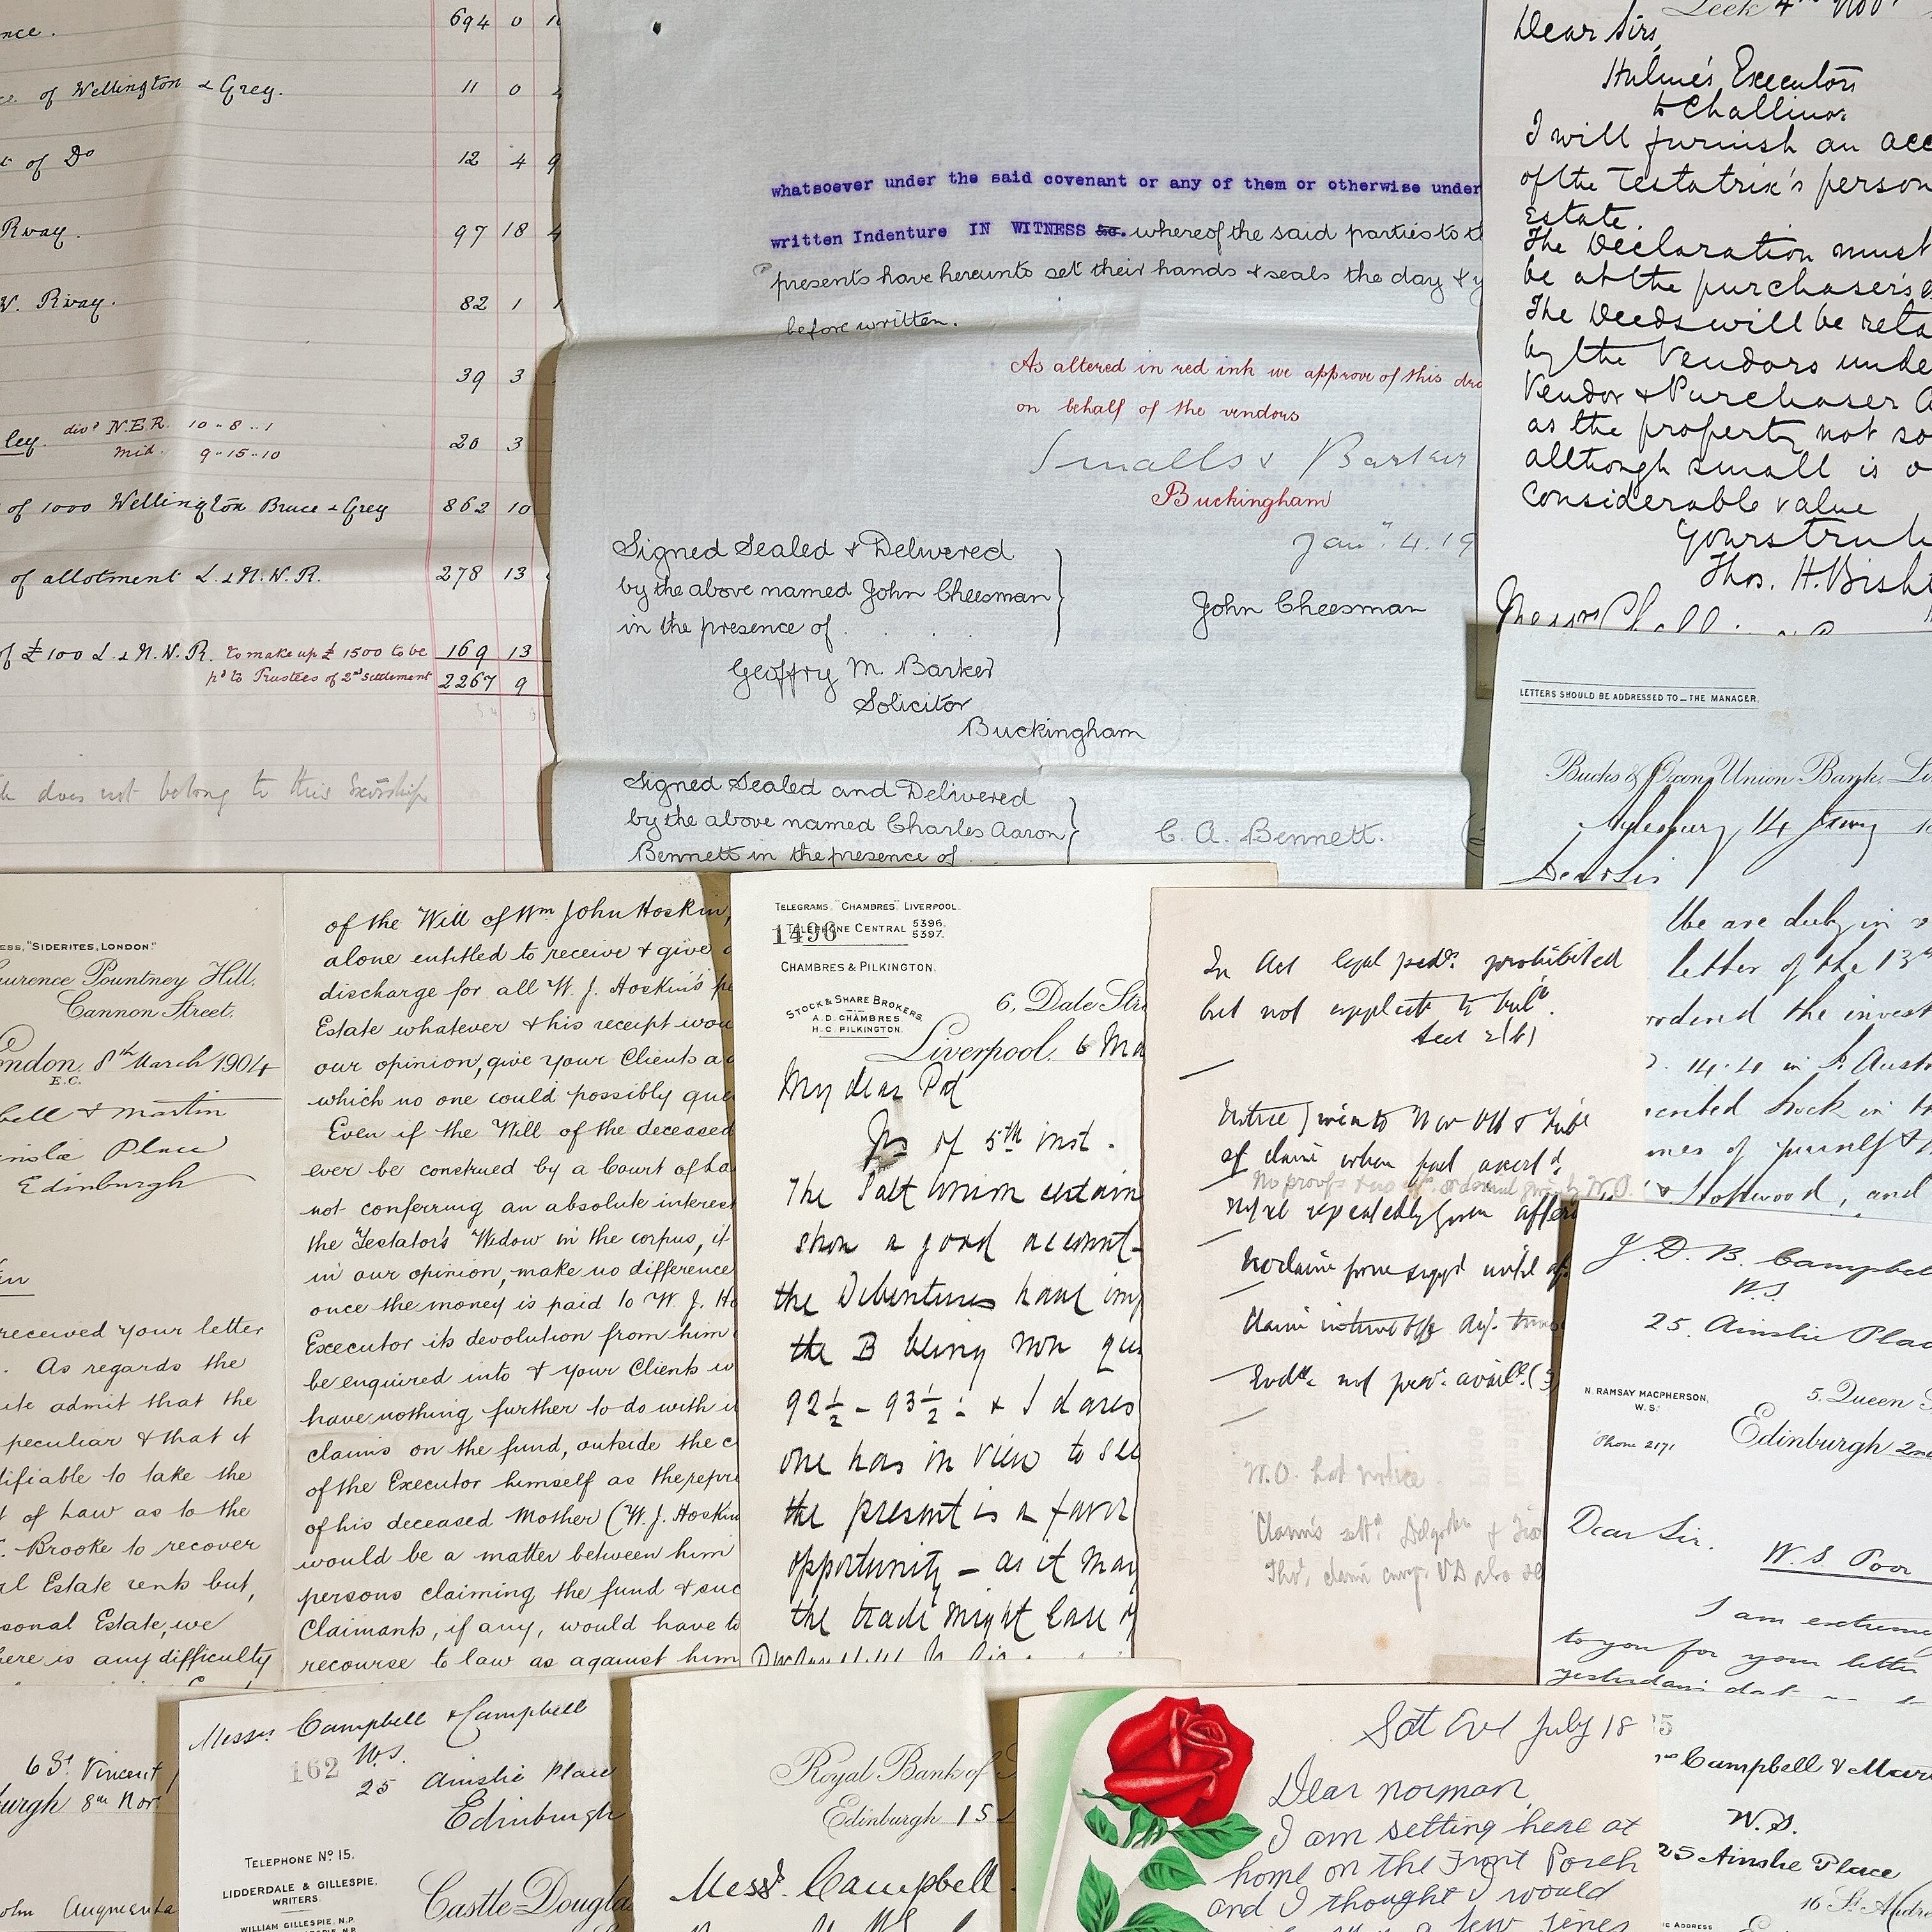 nce.
694 0
of Wellington & Grey.
11 0
of Do
12 4 9
Rway.
97 18 4
W. Rway.
82 1 1
39 3
ley. divd N.E.R. 10-8-1
mid. 9-15-10
20 3
of 1000 Wellington Bruce & Grey
862 10
of allotment L. & N.W.R.
278 13
of £100 L. & N.W.R. to make up £1500 to be
169 13
pd to Trustees of 2nd Settlement
2267 9
does not belong to this
whatsoever under the said covenant or any of them or otherwise under
written Indenture IN WITNESS &c. whereof the said parties to
presents have hereunto set their hands & seals the day &
before written.
As altered in red ink we approve of this
on behalf of the vendors
Smalls & Barker
Buckingham
Jany. 4. 19
Signed Sealed & Delivered
by the above named John Cheesman
in the presence of
John Cheesman
Geoffry M. Barker
Solicitor
Buckingham
Signed Sealed and Delivered
by the above named Charles Aaron
Bennett in the presence of
C. A. Bennett.
Leek 4th Nov
Dear Sirs,
Hulme's Executors
to Challinor
I will furnish an acc
of the Testatrix's person
Estate.
The Declaration must
be at the purchaser's
The Deeds will be reta
by the Vendors unde
Vendor & Purchaser A
as the property not so
although small is o
considerable value
Yours truly
Thos. H. Bisht
LETTERS SHOULD BE ADDRESSED TO THE MANAGER.
Bucks & Oxon Union Bank, Li
Aylesbury 14
Dear Sir
We are duly in
letter of the 13th
the invest
14.4 in S. Aust
stock in th
mes of yourself &
and
ESS, "SIDERITES, LONDON."
aurence Pountney Hill,
Cannon Street,
ondon, 8th March 1904
E.C.
bell & Martin
nslie Place
Edinburgh
received your letter
As regards the
ite admit that the
peculiar & that it
tifiable to take the
t of Law as to the
Brooke to recover
al Estate rents but,
sonal Estate, we
here is any difficulty
of the Will of Wm John Hoskin,
alone entitled to receive & give
discharge for all W. J. Hoskin's
Estate whatever & his receipt wou
our opinion, give your Clients a
which no one could possibly que
Even if the Will of the deceased
ever be construed by a Court of La
not conferring an absolute interest
the Testator's Widow in the corpus, it
in our opinion, make no difference
once the money is paid to W. J. Ho
Executor its devolution from him
be enquired into & your Clients w
have nothing further to do with i
claims on the fund, outside the c
of the Executor himself as the repre
of his deceased Mother (W. J. Hoskin
would be a matter between him
persons claiming the fund & suc
Claimants, if any, would have to
recourse to law as against him
TELEGRAMS, "CHAMBRES" LIVERPOOL.
1496
TELEPHONE CENTRAL 5396. 5397.
CHAMBRES & PILKINGTON.
STOCK & SHARE BROKERS.
A.D. CHAMBRES.
H.C. PILKINGTON.
6, Dale Stre
Liverpool, 6 Ma
My dear
of 5th inst.
The Salt Union certain
show a good account-
the Debentures have imp
the B being now quo
92½ - 93½ : & I dares
one has in view to sell
the present is a favor
opportunity - as it may
the trade might
In Act legal prohibited
but not applicate to
Sect 2(b)
of claim when
repeatedly given
W.O. not notice
J. D. B. Campbel
W.S.
25, Ainslie Plac
N. RAMSAY MACPHERSON,
W.S.
'Phone 2171
5, Queen S
Edinburgh 2nd
Dear Sir.
W. S. Poor
I am extreme
to you for your letter
yesterday's dat
6 St Vincent
urgh 8th Nor.
ohn Augmenta
Messrs Campbell & Campbell
W.S.
162
25 Ainslie Place
Edinburgh
TELEPHONE No 15.
LIDDERDALE & GILLESPIE,
WRITERS.
WILLIAM GILLESPIE, N.P.
Castle Dougla
Royal Bank of
Edinburgh 15
Messrs. Campbell
Sat Eve July 18
Dear Norman,
I am setting here at
home on the Front Porch
and I thought I would
a few lines
Campbell & Mar
W.S.
25 Ainslie Place
16 St. Andre
ADDRESS